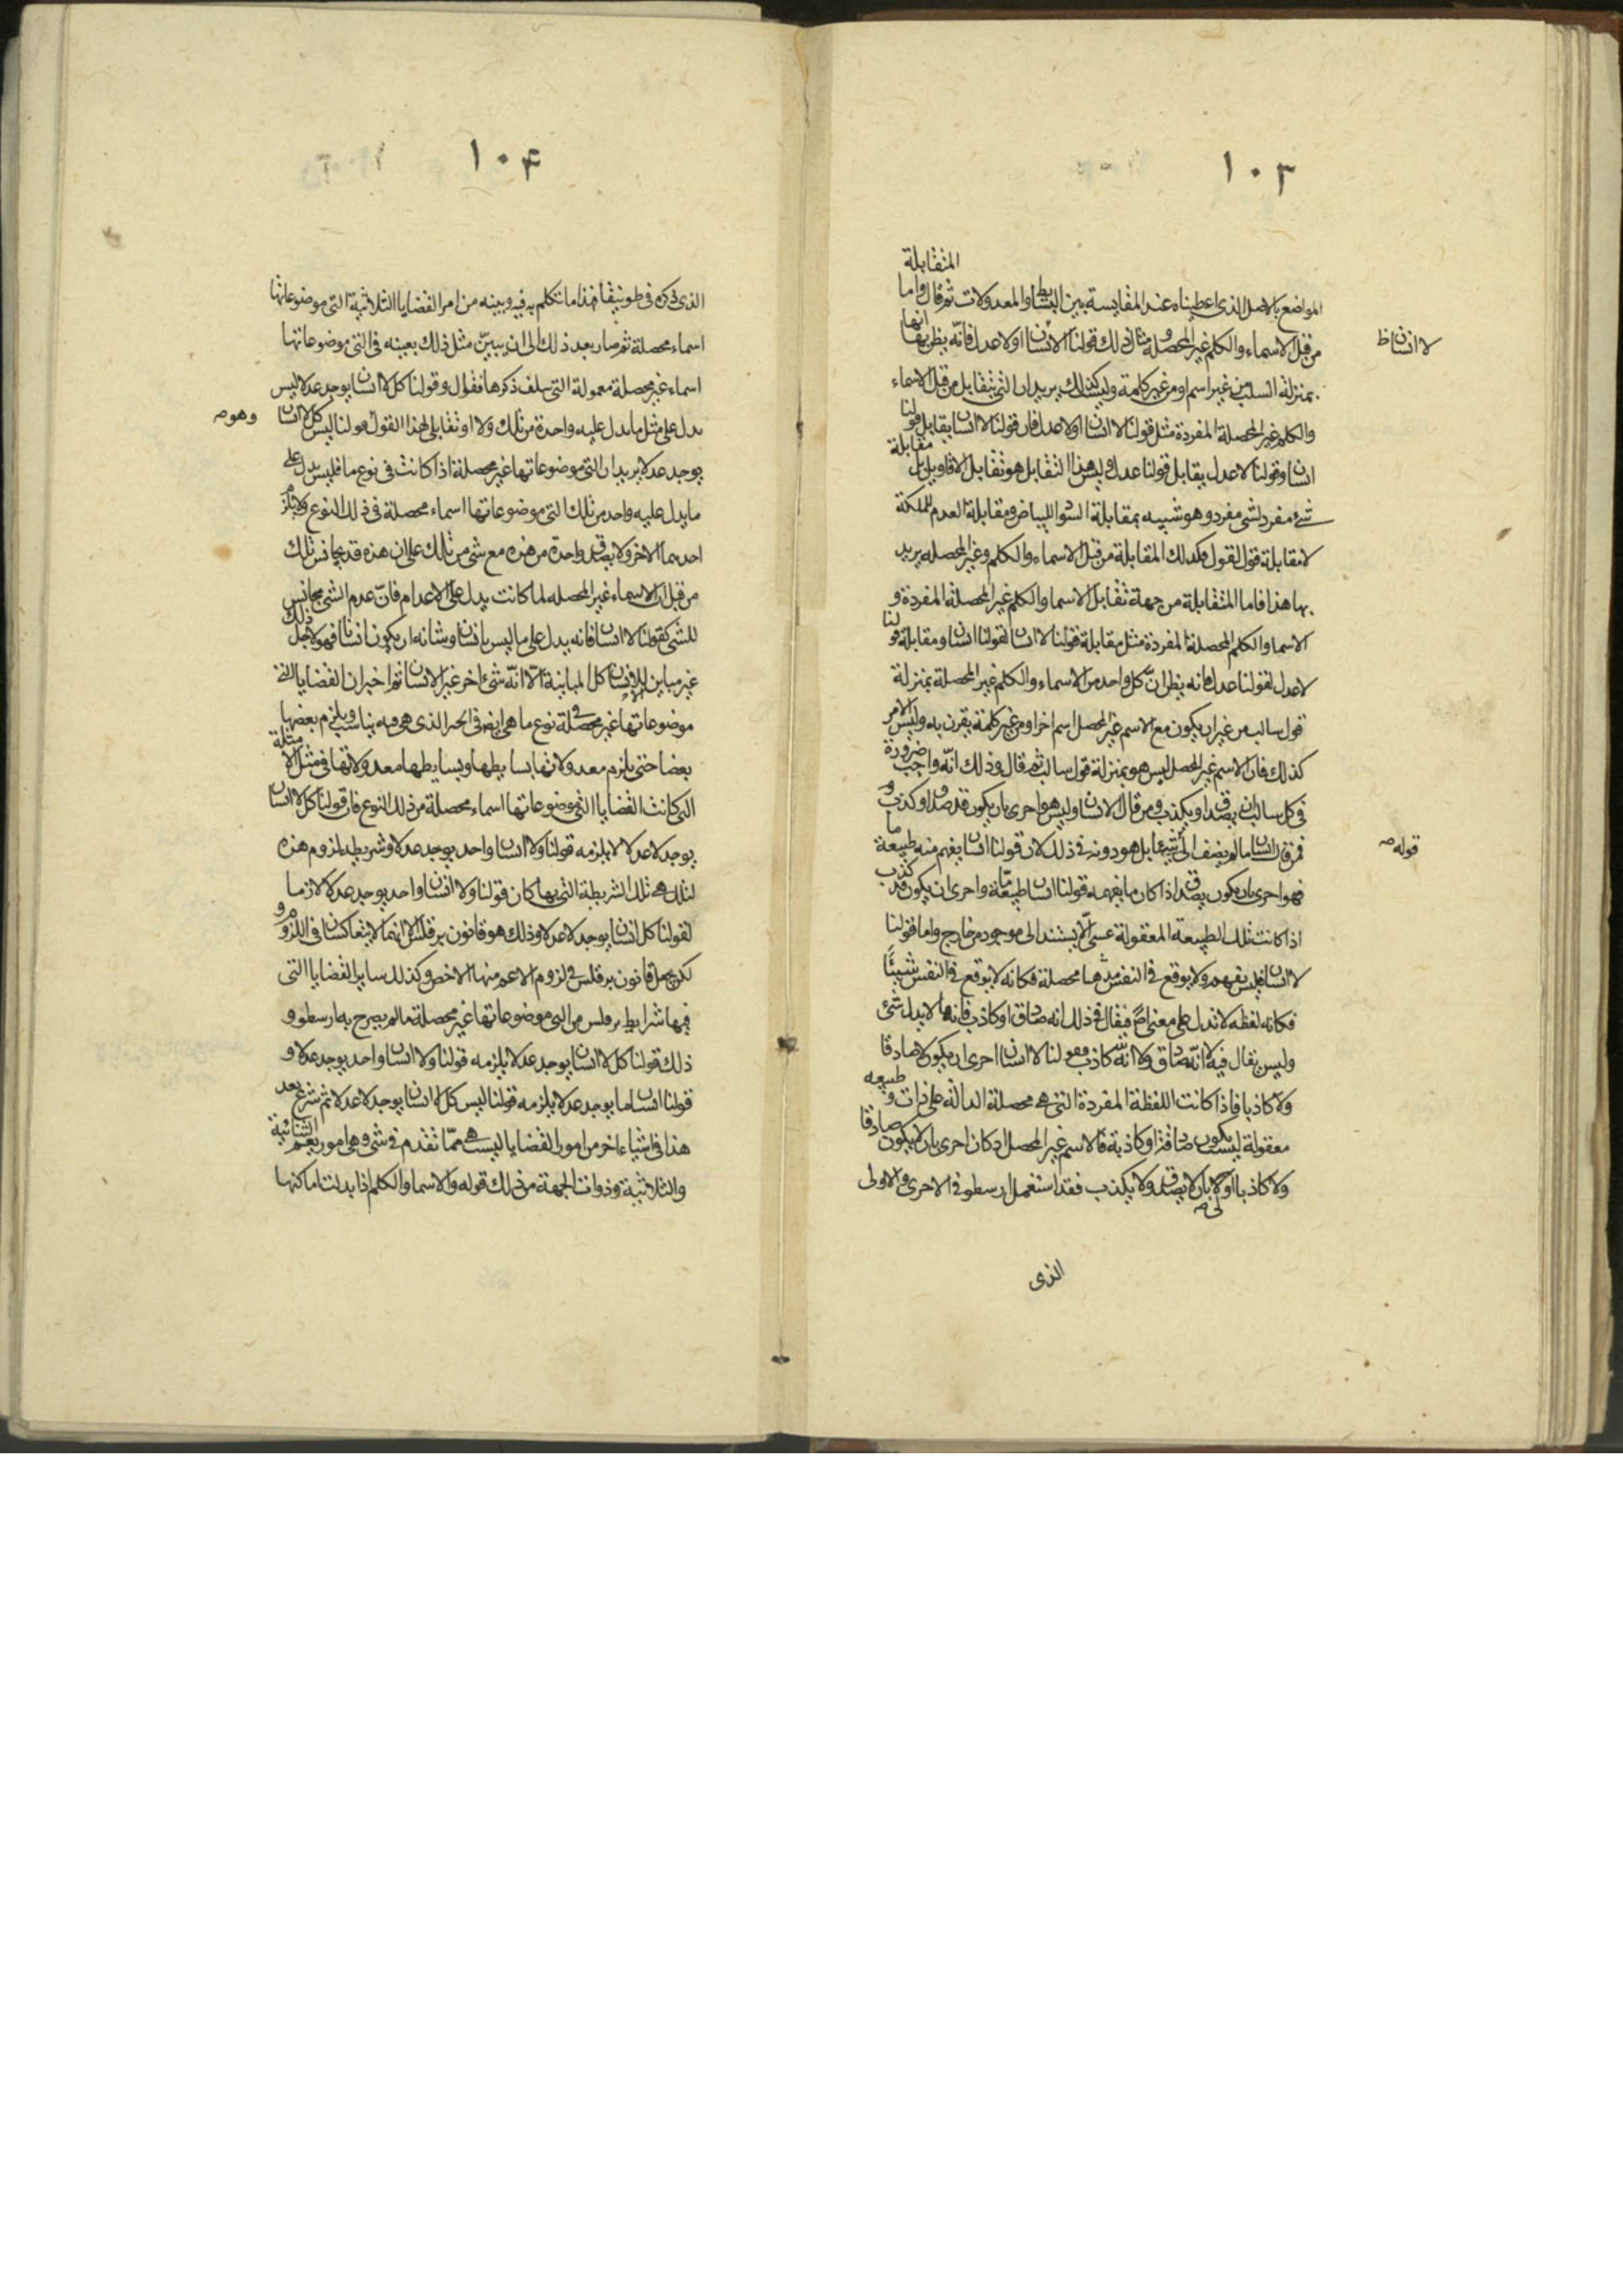 ١٠٣
المتقابلة
المواضع بالاصل الذى اعطيناه عند المقايسة بين البسائط والمعدولات ثم قال واما
من قبل الاسماء والكلم غير المحصلة ومثال ذلك قولنا لا انسان او لا عدل فانه يظن بها انها
لا انسان ظ
بمنزلة السلب من غير اسم او من غير كلمة وليس كذلك يريد ان التى تتقابل من قبل الاسماء
والكلم غير المحصلة المفردة مثل قولنا لا انسان او لا عدل فان قولنا لا انسان يقابل قولنا
انسان وقولنا لا عدل يقابل قولنا عدل وليس هذا التقابل هو تقابل الاقاويل بل مقابلة
شئ مفرد لشئ مفرد وهو شبيه بمقابلة السواد للبياض ومقابلة العدم للملكة
لا مقابلة قول لقول وكذلك المقابلة من قبل الاسماء والكلم وغير المحصله يريد
بها هذا فاما المتقابلة من جهة تقابل الاسما والكلم غير المحصلة المفردة و
الاسما والكلم المحصلة المفردة مثل مقابلة قولنا لا انسان لقولنا انسان ومقابلة قولنا
لا عدل لقولنا عدل فانه يظن ان كل واحد من الاسماء والكلم غير المحصلة بمنزلة
قول سالب من غير ان يكون مع الاسم غير المحصل اسم اخر او من غير كلمة يقرن به وليس الامر
كذلك فان الاسم غير المحصل ليس هو بمنزلة قول سالب ثم قال وذلك انه واجب ضرورة
فى كل سالب ان يصدق او يكذب ومن قال لا انسان وليس هو احرى بان يكون قد صدق او كذب
فمن قال انسان ما لم يضف الى شيئا بل هو دونه فى ذلك لان قولنا انسان يفهم منه طبيعة ما
قوله صـ
فهو احرى بان يكون يصدق اذا كان ما يفهمه قولنا انسان طبيعة ما واحرى ان يكون قد كذب
اذا كانت تلك الطبيعة المعقولة عسى الا يستند الى موجود من خارج واما قولنا
لا انسان فليس يفهم ولا يوقع فى النفس محصلة فكانه لا يوقع فى النفس شيئا
فكانه لفظه لا تدل على معنى فيقال فى ذلك انه صادق او كاذب فانه لا يدل شئ
وليس يقال فيه انه صادق ولا انه كاذب فقولنا لا انسان احرى ان يكون لا صادقا
ولا كاذبا فاذا كانت اللفظة المفردة التى هى محصلة الدالة على ذات وطبيعه
معقولة ليست يكون صادقة او كاذبة فالاسم غير المحصل كان احرى بان لا يكون صادقا
ولا كاذبا بان لا يصدق ولا يكذب فقد استعمل ارسطو فى الاحرى والاولى
الذى
١٠٤
الذى ذكره فى طوبيقا فهذا ما تكلم به فيه وبينه من امر القضايا الثلاثية التى موضوعاتها
اسماء محصلة ثم صار بعد ذلك الى ان يبين مثل ذلك بعينه فى التى موضوعاتها
اسماء غير محصلة معمولة التى سلف ذكرها فقال وقولنا كل لا انسان يوجد عدلا ليس
يدل على مثل ما يدل عليه واحدة من تلك ولا او تقابل لهذا القول قولنا ليس كل لا انسان
وهو صـ
يوجد عدلا يريد ان التى موضوعاتها غير محصلة اذا كانت فى نوع ما فليس يدل على
ما يدل عليه واحد من تلك التى موضوعاتها اسماء محصلة فى ذلك النوع ولا يلزم
احدهما الاخر ولا يصدق واحدة من هذه مع شئ من تلك على ان هذه قد يجانس تلك
من قبل ان الاسماء غير المحصله لما كانت يدل على الاعدام فان عدم الشئ مجانس
للشئ كقولنا لا انسان فانه يدل على ما ليس بانسان وشانه ان يكون انسانا فهو لاجل ذلك
غير مباين للانسان كل المباينة الا انه شئ اخر غير الانسان ثم اخبر ان القضايا التى
موضوعاتها غير محصلة فى نوع ما هى ايضا الذى هى فيه يناسب ويلزم بعضها
بعضا حتى يلزم معدولاتها بسايطها وبسايطها معدولاتها فى مثل الامثلة
التى كانت القضايا التى موضوعاتها اسماء محصلة من ذلك النوع فان قولنا كل لا انسان
يوجد لا عدلا يلزمه قولنا ولا لا انسان واحد يوجد عدلا وشريطة لزوم هذه
لتلك هى تلك الشريطة التى بها كان قولنا ولا انسان واحد يوجد عدلا لازما
لقولنا كل انسان يوجد لا عدلا وذلك هو قانون برقلس لانهما لا يتعاكسان فى اللزوم
لكن يحمل قانون برقلس فى لزوم الاعم منها الاخص وكذلك ساير القضايا التى
فيها شرايط برقلس من التى موضوعاتها غير محصلة ما لم يصرح به ارسطو و
ذلك قولنا كل لا انسان يوجد عدلا يلزمه قولنا ولا لا انسان واحد يوجد عدلا و
قولنا انسان ما يوجد عدلا يلزمه قولنا ليس كل لا انسان يوجد لا عدلا ثم شرع بعد
هذا فى اشياء اخر من امور القضايا ليست هى مما تقدم فى شئ وهى امور يعم الثنائية
والثلاثية وذوات الجهة من ذلك قوله والاسما والكلم اذا بدلت اماكنها